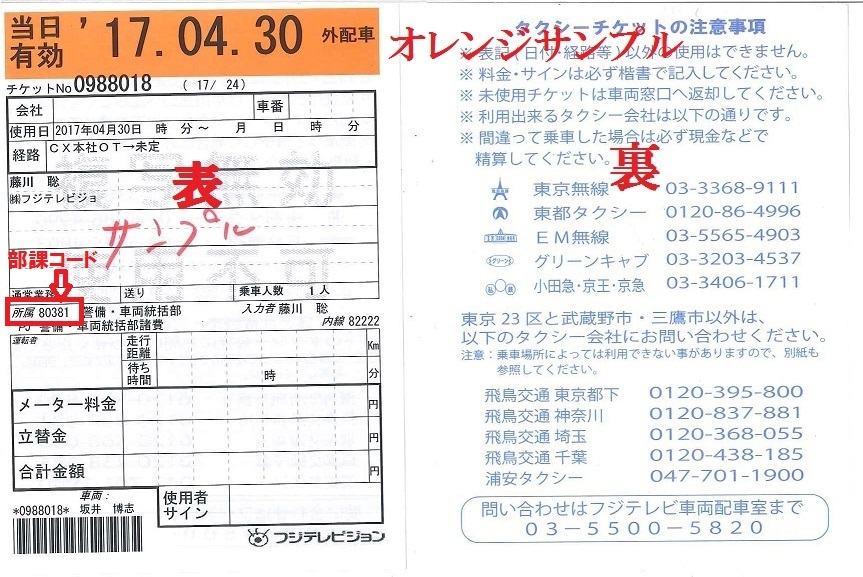 当日有効 '17.04.30 外配車
チケットNo0988018 ( 17/ 24)
会社 車番
使用日 2017年04月30日 時 分 ～ 月 日 時 分
経路 CX本社OT→未定
藤川 聡
㈱フジテレビジョ
表
サンプル
部課コード
通常業務 送り 乗車人数 1 人
所属 80381 警備・車両統括部 入力者 藤川 聡
PJ 警備・車両統括部諸費 内線 82222
運転者 走行距離 Km
待ち時間 時 分
メーター料金 円
立替金 円
合計金額 円
車両: 使用者サイン
*0988018* 坂井 博志
フジテレビジョン
オレンジサンプル
タクシーチケットの注意事項
※ 表記(日付・経路等)以外の使用はできません。
※ 料金・サインは必ず楷書で記入してください。
※ 未使用チケットは車両窓口へ返却してください。
※ 利用出来るタクシー会社は以下の通りです。
※ 間違って乗車した場合は必ず現金などで
精算してください。
裏
東京無線 03-3368-9111
東都タクシー 0120-86-4996
EM無線 03-5565-4903
グリーンキャブ 03-3203-4537
小田急・京王・京急 03-3406-1711
東京23区と武蔵野市・三鷹市以外は、
以下のタクシー会社にお問い合わせください。
注意：乗車場所によっては利用できない事がありますので、別紙も
参照してください。
飛鳥交通 東京都下 0120-395-800
飛鳥交通 神奈川 0120-837-881
飛鳥交通 埼玉 0120-368-055
飛鳥交通 千葉 0120-438-185
浦安タクシー 047-701-1900
問い合わせはフジテレビ車両配車室まで
03－5500－5820